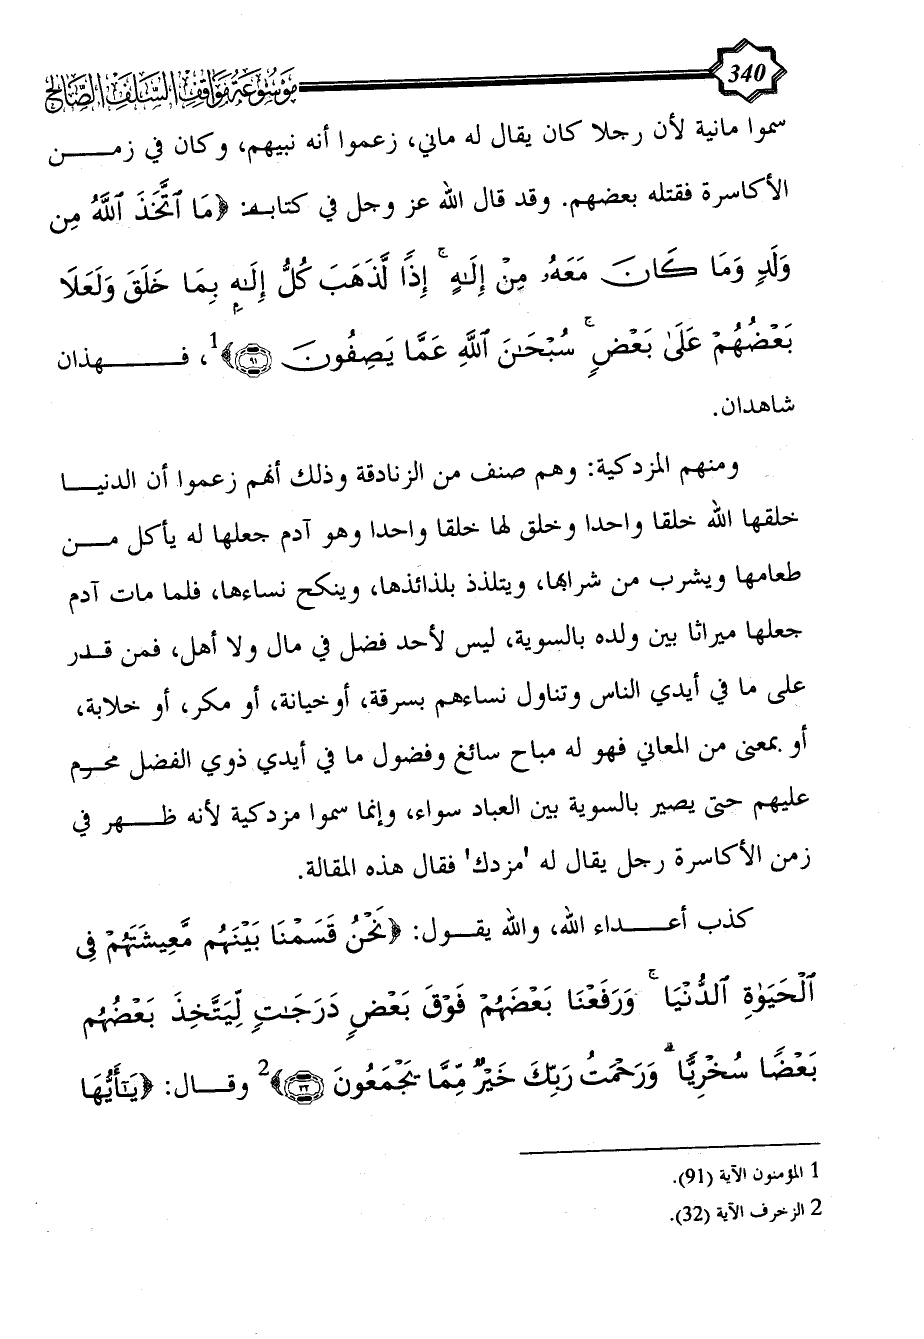 340
موسوعة مواقف السلف الصالح
سموا مانية لأن رجلا كان يقال له ماني، زعموا أنه نبيهم، وكان في زمن
الأكاسرة فقتله بعضهم. وقد قال الله عز وجل في كتابه: ﴿مَا ٱتَّخَذَ ٱللَّهُ مِن
وَلَدٍ وَمَا كَانَ مَعَهُۥ مِنْ إِلَٰهٍ ۚ إِذًا لَّذَهَبَ كُلُّ إِلَٰهٍۭ بِمَا خَلَقَ وَلَعَلَا
بَعْضُهُمْ عَلَىٰ بَعْضٍ ۚ سُبْحَٰنَ ٱللَّهِ عَمَّا يَصِفُونَ ٩١﴾1، فهذان
شاهدان.
ومنهم المزدكية: وهم صنف من الزنادقة وذلك أنهم زعموا أن الدنيا
خلقها الله خلقا واحدا وخلق لها خلقا واحدا وهو آدم جعلها له يأكل من
طعامها ويشرب من شرابها، ويتلذذ بلذائذها، وينكح نساءها، فلما مات آدم
جعلها ميراثا بين ولده بالسوية، ليس لأحد فضل في مال ولا أهل، فمن قدر
على ما في أيدي الناس وتناول نساءهم بسرقة، أو خيانة، أو مكر، أو خلابة،
أو بمعنى من المعاني فهو له مباح سائغ وفضول ما في أيدي ذوي الفضل محرم
عليهم حتى يصير بالسوية بين العباد سواء، وإنما سموا مزدكية لأنه ظهر في
زمن الأكاسرة رجل يقال له 'مزدك' فقال هذه المقالة.
كذب أعداء الله، والله يقول: ﴿نَحْنُ قَسَمْنَا بَيْنَهُم مَّعِيشَتَهُمْ فِى
ٱلْحَيَوٰةِ ٱلدُّنْيَا ۚ وَرَفَعْنَا بَعْضَهُمْ فَوْقَ بَعْضٍ دَرَجَٰتٍ لِّيَتَّخِذَ بَعْضُهُم
بَعْضًا سُخْرِيًّا ۗ وَرَحْمَتُ رَبِّكَ خَيْرٌ مِّمَّا يَجْمَعُونَ ٣٢﴾2 وقال: ﴿يَٰٓأَيُّهَا
1 المؤمنون الآية (91).
2 الزخرف الآية (32).